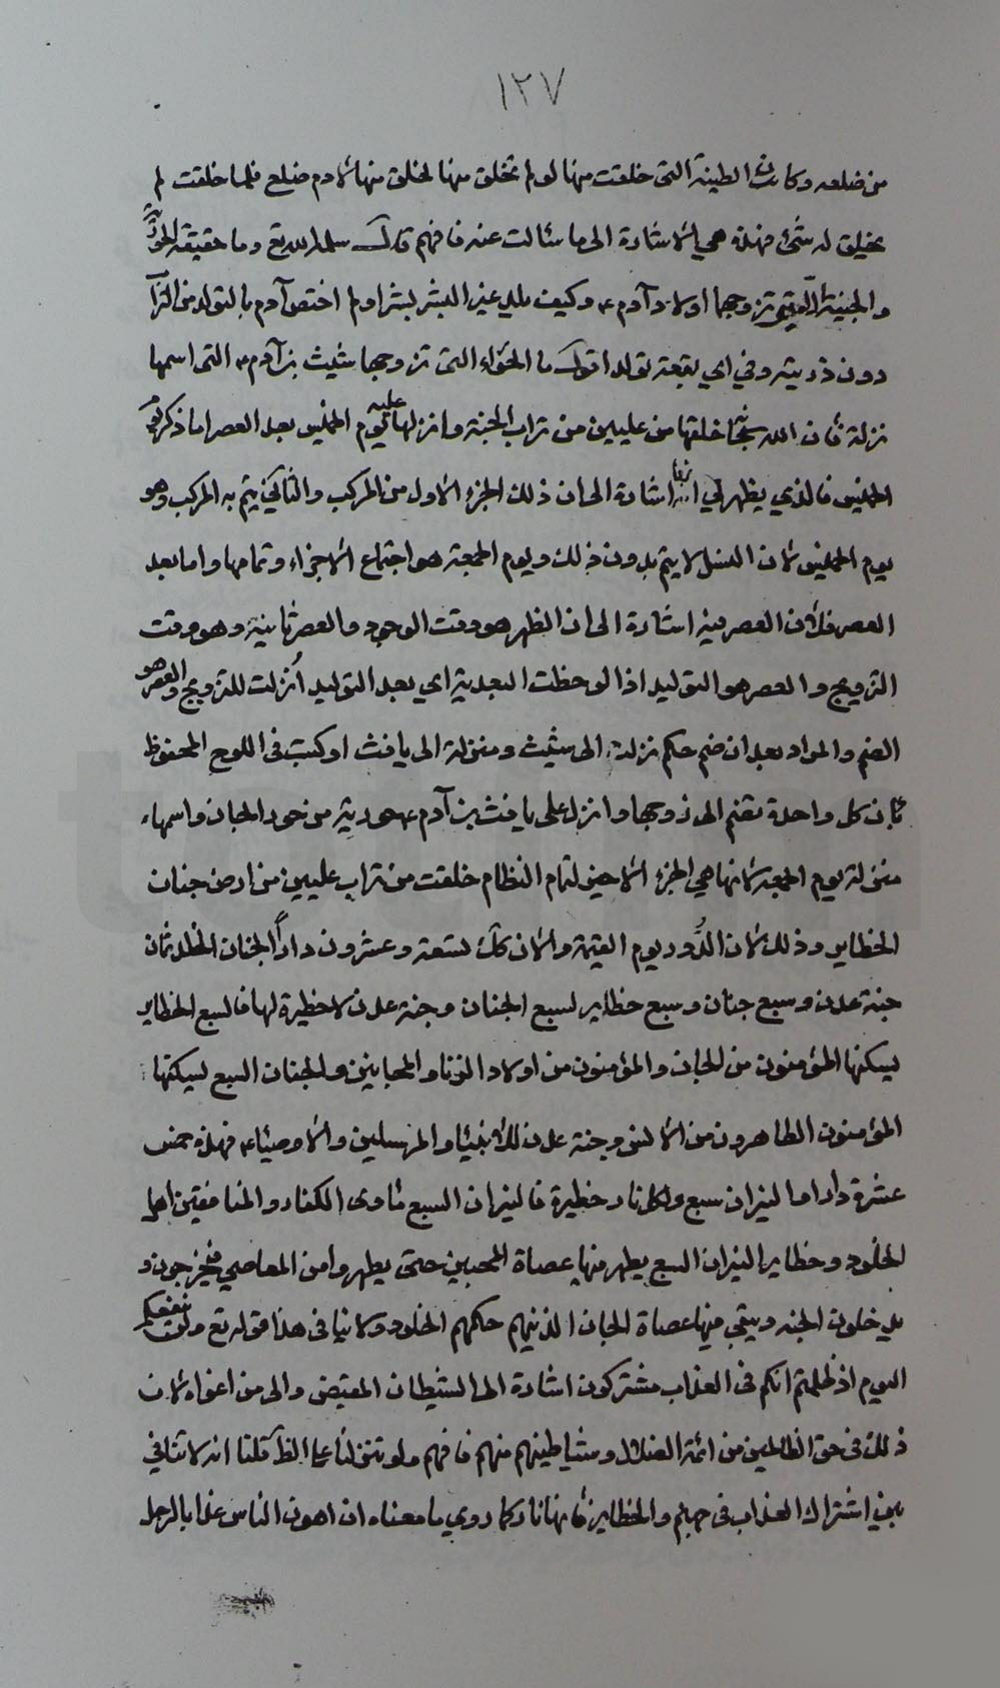 ١٢٧
من ضلعه وكانت الطينة التى خلقت منها لو لم تخلق منها لخلق منها لادم ضلع فلما خلقت لم
يخلق له شئ فهذه هي الاشارة الى ما سئالت عنه فافهم قال سلمه الله تع وما حقيقة الحورية
والجنية التى تزوجهما اولاد آدم ع وكيف يلد غير البشر بشرا ولم اختص آدم بالتولد من التراب
دون ذريته وفي اي بقعة تولد اقول اما الحوراء التى تزوجها شيث بن آدم ع التى اسمها
نزلة فان الله سبحانه خلقها من عليين من تراب الجنة وانزلها عليه يوم الخميس بعد العصر اما ذكر يوم
الخميس فالذي يظهر لي انها اشارة الى ان ذلك الجزء الاول من المركب والثاني يتم به المركب وهو
يوم الخميس لان النسل لا يتم بدون ذلك ويوم الجمعة هو اجتماع الاجزاء وتمامها واما بعد
العصر فلان العصر فيه اشارة الى ان الظهر هو وقت الوجود والعصر ثانيته وهو وقت
التزويج والعصر هو التوليد اذا لوحظت البعدية اي بعد التوليد أنزلت للتزويج والعصر هو
الضم والمراد بعد ان ضم حكم نزلة الى شيث ومنزلة الى يافث او كتب فى اللوح المحفوظ
بان كل واحدة تضم الى زوجها وانزل على يافث بن آدم ع حورية من حور الجان واسمها
منزلة يوم الجمعة لانها هي الجزء الاخير لتمام النظام خلقت من تراب عليين من ارض جنان
الحظاير وذلك لان الدُّور يوم القيمة والان كك تسعة وعشرون داراً الجنان الخلد ثمان
جنة عدن وسبع جنان وسبع حظاير لسبع الجنان وجنة عدن لا حظيرة لها فالسبع الحظاير
يسكنها المؤمنون من الجان والمؤمنون من اولاد الزنا والمجانين والجنان السبع يسكنها
المؤمنون الطاهرون من الانس وجنة عدن للانبياء والمرسلين والاوصياء ع فهذه خمس
عشرة دارا اما النيران سبع ولكل نار حظيرة فالنيران السبع مأوى الكفار والمنافقين اهل
الخلود وحظاير النيران السبع يطهر فيها عصاة المحبين حتى يطهروا من المعاصي فيخرجون و
يدخلون الجنة ويبقي فيها عصاة الجان الذين حكمهم الخلود ولا ينافى هذا قوله تع ولن ينفعكم
اليوم اذ ظلمتم انكم فى العذاب مشتركون اشارة الى الشيطان المقيض والى من اغواه لان
ذلك فى حق الظالمين من ائمة الضلال وشياطينهم منهم فافهم ولو تنزلنا على الظ قلنا انه لا تنافي
بين اشتراك العذاب فى جهنم والحظاير فانها نار كما روي ما معناه ان اهون الناس عذابا لرجل